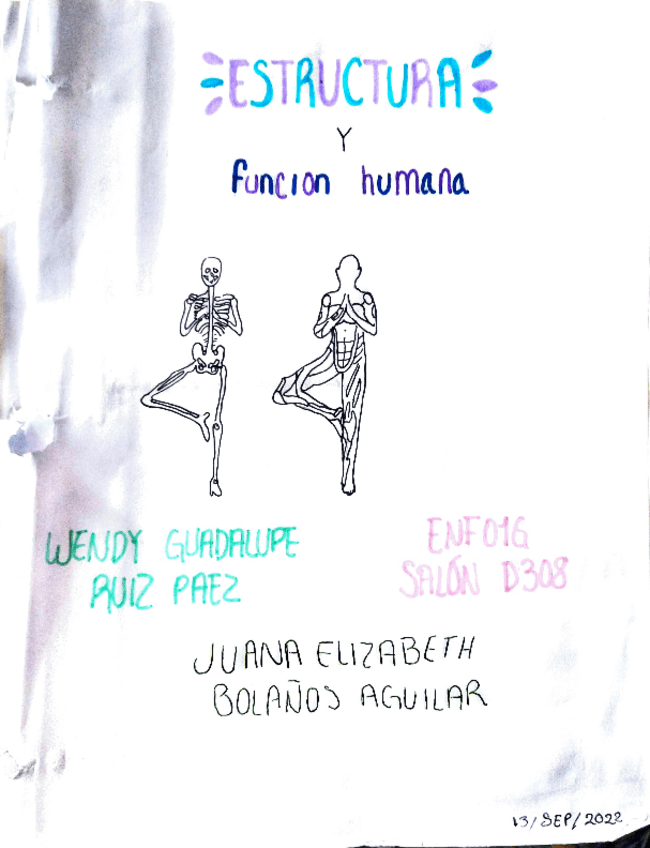 ESTRUCTURA
Y
funcion humana
WENDY GUADALUPE
RUIZ PAEZ
ENF01G
SALÓN D308
JUANA ELIZABETH
BOLAÑOS AGUILAR
13/SEP/2022